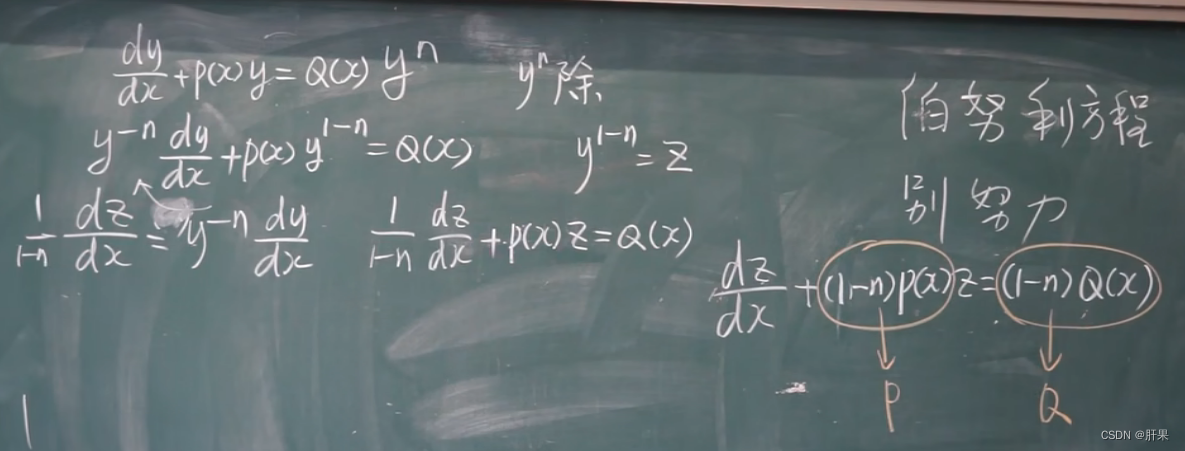 dy/dx + p(x)y = Q(x) yⁿ yⁿ除
伯努利方程
y⁻ⁿ dy/dx + p(x) y¹⁻ⁿ = Q(x) y¹⁻ⁿ = z
别努力
1/1-n dz/dx = y⁻ⁿ dy/dx 1/1-n dz/dx + p(x) z = Q(x)
dz/dx + (1-n)p(x) z = (1-n) Q(x)
P Q
CSDN @肝果